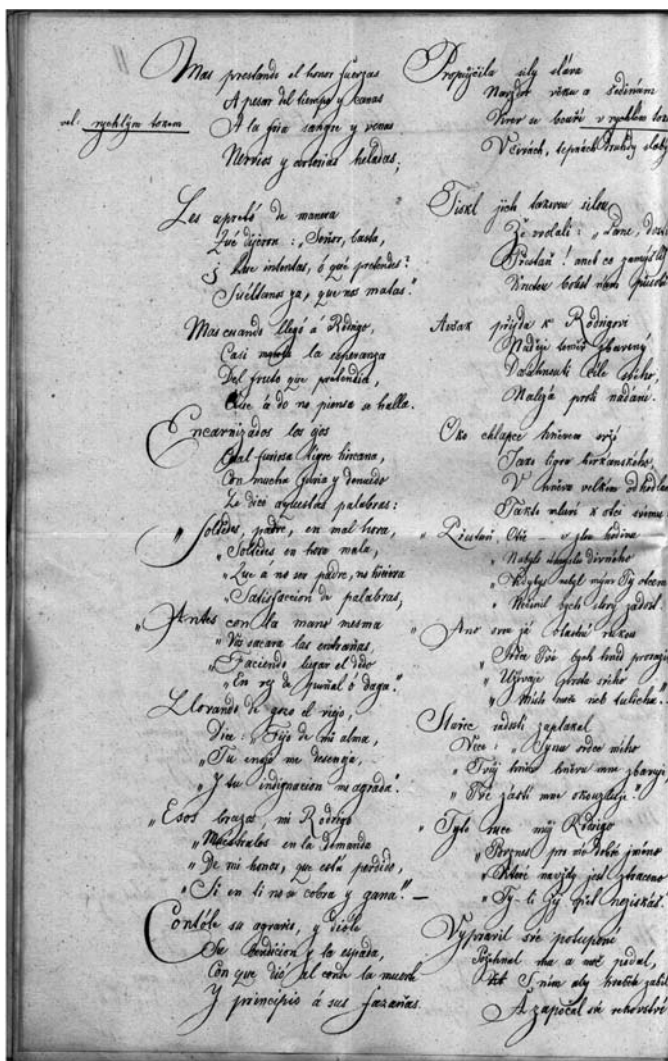 vel. rychlým tokem
Mas prestando el honor fuerzas
A pesar del tiempo y canas
Á la fria sangre y venas
Nervios y arterias heladas;
Les apretó de manera
Qué dijeron: „Señor, basta,
¿ intentas, ó qué pretendes?
Suéltanos ya, que nos matas."
Mas cuando llegó á Rodrigo,
Casi la esperanza
Del fruto que pretendia,
Que á do no piensa se halla.
Encarnizados los ojos
Cual furiosa tigre hircana,
Con mucha furia y denuedo
Le dice aquestas palabras:
„Soltedes, padre, en mal hora,
„Soltedes en hora mala,
„Que á no ser padre, no hiciera
„Satisfaccion de palabras;
„Antes con la mano mesma
„Vos sacara las entrañas,
„Faciendo lugar el dedo
„En vez de puñal ó daga."
Llorando de gozo el viejo,
Dice: „Fijo de mi alma,
„Tu enojo me desenoja,
„Y tu indignacion me agrada".
„Esos brazos, mi Rodrigo
„Muéstralos en la demanda
„De mi honor, que está perdido,
„Si en ti no se cobra y gana." —
Contóle su agravio, y dióle
Su bendicion y la espada,
Con que dió al conde la muerte
Y principio á sus fazañas.
Propůjčila síly sláva
Navzdor věku a šedinám
Krev se bouří v rychlém
V čivách, tepnách druhdy
Tiskl jich takovou silou
Že volali: „Pane,
Přestaň! aneb co
Krutou bolest nám
Avšak přijda k Rodrigovi
Naděje téměř zbavený
Dosáhnouti cíle svého,
Nalezá proti nadání.
Oko chlapce hněvem
Jako tigra hirkanského,
V hněvu velkém
Takto mluví k otci svému
„Přestaň, Otče – v zlou hodinu
„Nebylo divného
„Kdybys nebyl mým Ty otcem
„ bych slovy zadost.
„Ano svou já vlastní rukou
„ Tvé bych hned
„Užívaje prstu svého
„Místo nože neb tulichu."
Stařec radostí zaplakal
Řece: „Synu srdce mého
„Tvůj hněvu mne zbavuje,
„Tvé zášti mne okouzluje".
„Tyto ruce můj Rodrigo
„Pozvedni pro mé dobré jméno
„Které navždy jest ztraceno
„Ty-li jej zpět nezískáš.
Vypravil své potupení
Požehnal mu a meč podal,
S ním aby hraběte zabil
A započal své rekovství